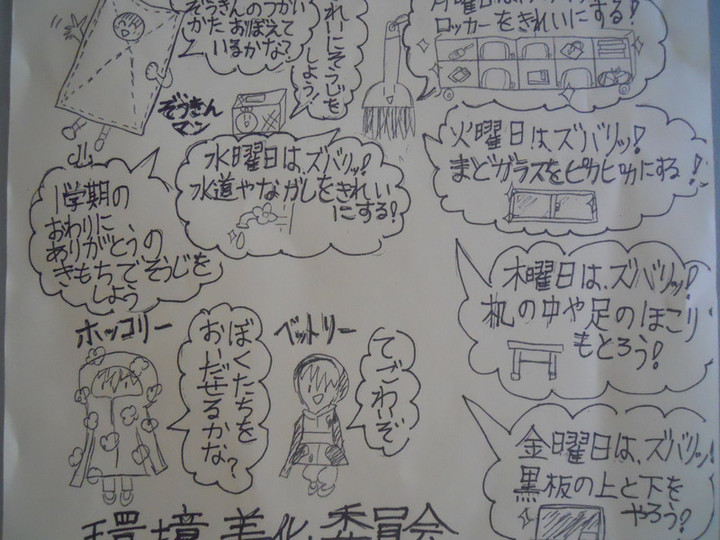 ぞうきんのつかい
かた おぼえて
いるかな?
きれいにそうじを
しよう!
ロッカーをきれいにする!
ぞうきん
マン
火曜日は、ズバリッ!
まどガラスをピカピカにする!
水曜日は、ズバリッ!
水道やながしをきれい
にする!
1学期の
おわりに
ありがとうの
きもちでそうじを
しよう
木曜日は、ズバリッ!
机の中や足のほこり
もとろう!
ホッコリー
ぼくたちを
おいだせるかな?
ベットリー
てごわいぞ
金曜日は、ズバリッ!
黒板の上と下を
やろう!
環境美化委員会